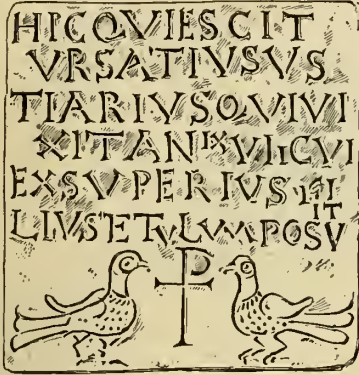 HIC QVIESCIT
VRSATIVS VS
TIARIVS QVI VI
XIT AN LXVII CVI
EXSVPERIVS FI
LIVS ET VLVM POSV
IT